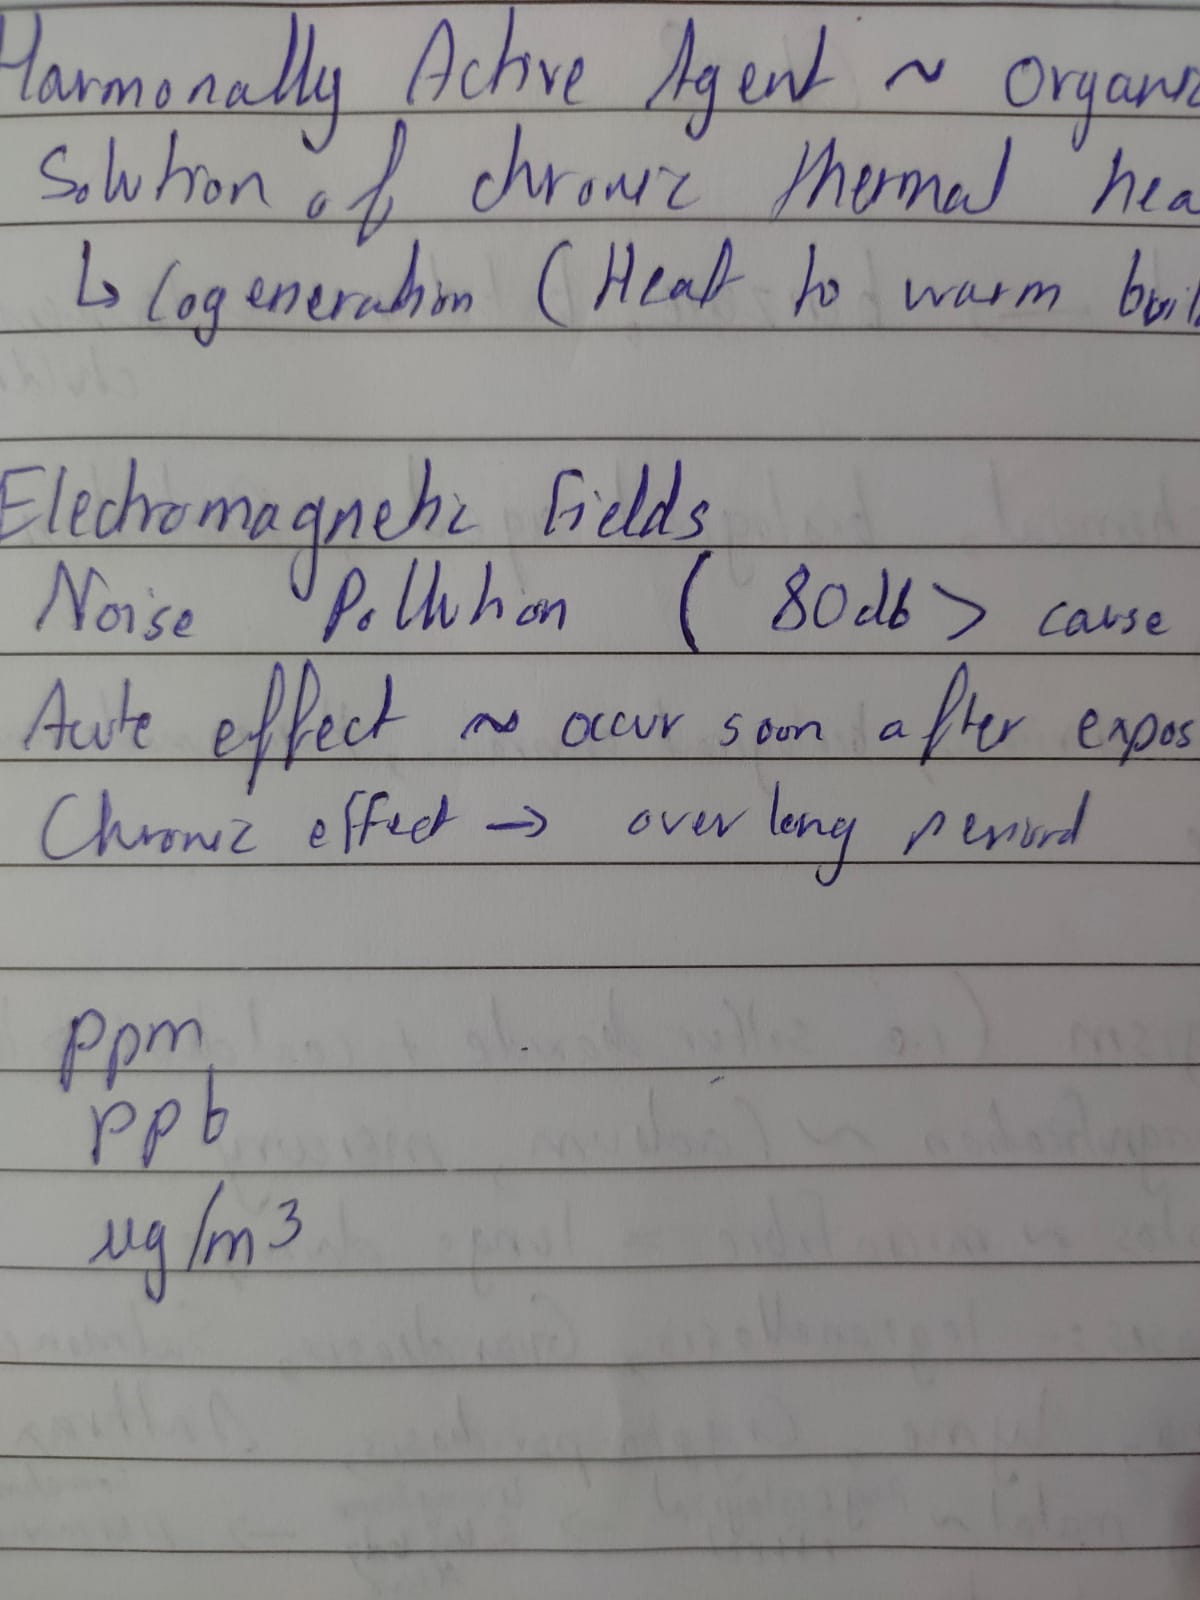 Harmonally Active Agent ~ Organic
Solution of chronic thermal hea
↳ Cogeneration (Heat to warm buil
Electromagnetic Fields
Noise Pollution ( 80db > cause
Acute effect ~ occur soon after expos
Chronic effect → over long period
ppm
ppb
ug/m3